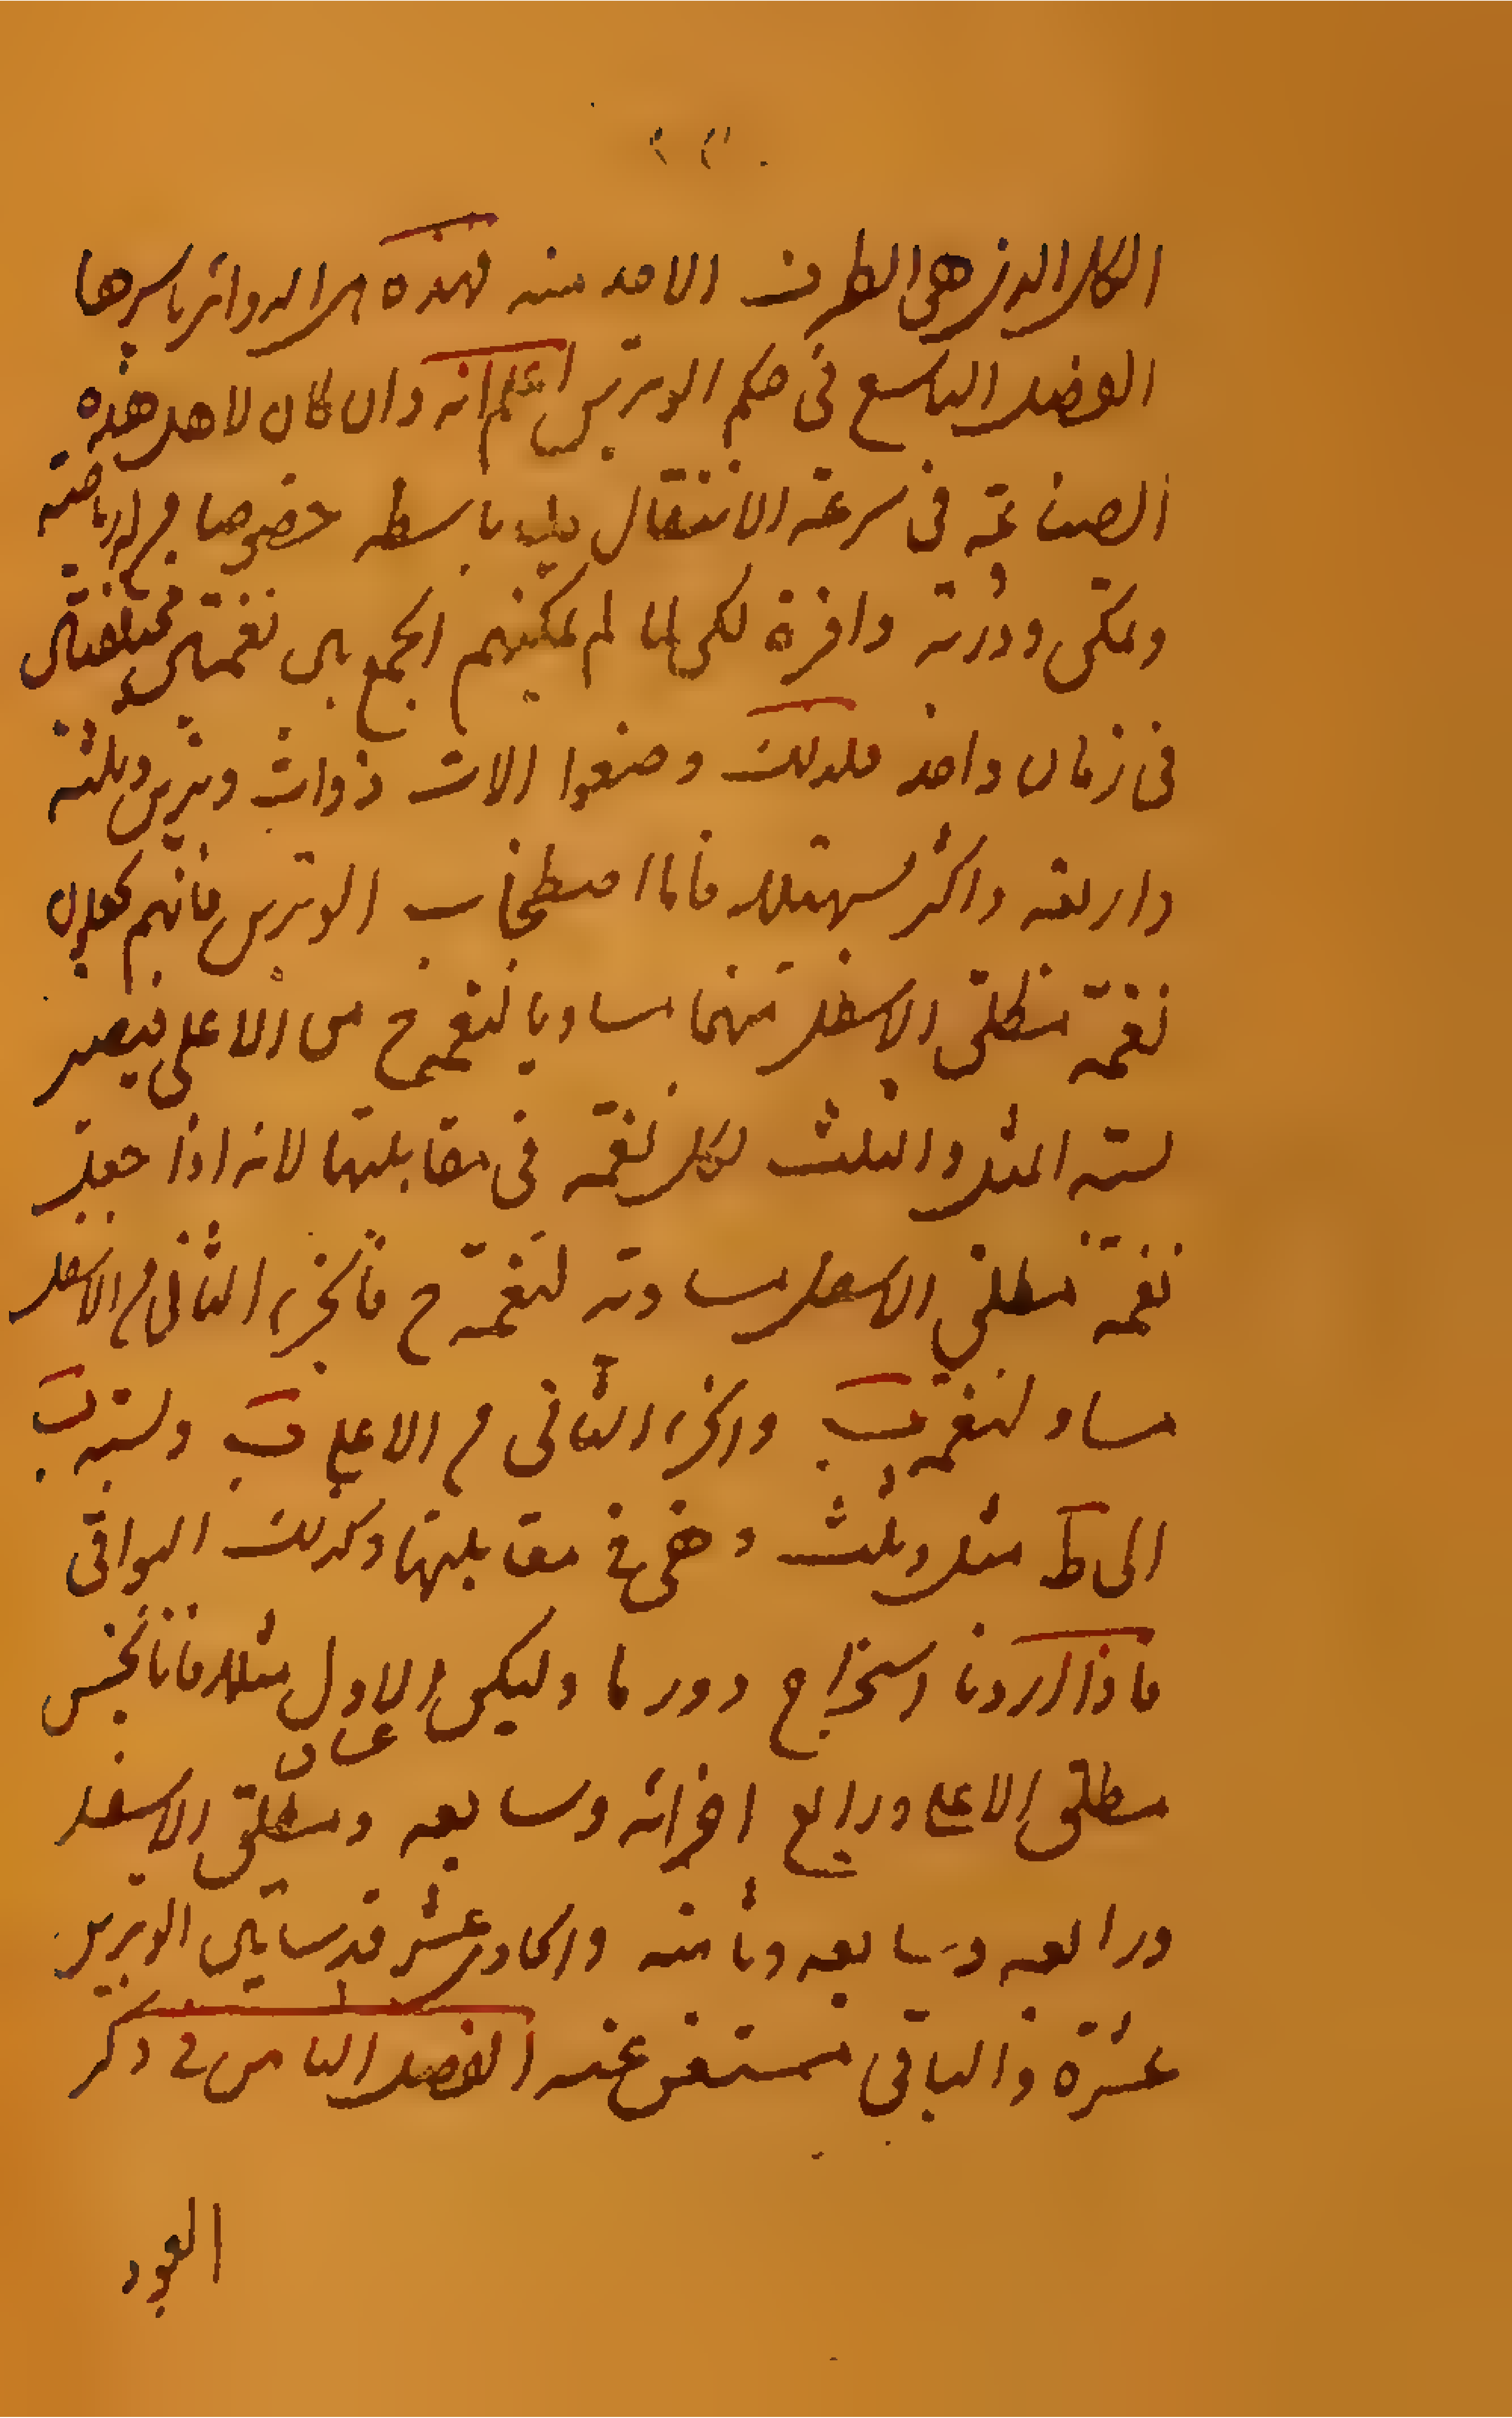 الكل الذي هي الطرف الاحد منه فهذه هي الدوائر باسرها
الفصل السابع في حكم الوترين اعلم انه وان كان لاهل هذه
الصناعة في سرعة الانتقال يد باسطه خصوصا من له رياضة
وتمكن ودربة وافرة لكن لما لم يمكنهم الجمع بين نغمتين مختلفتين
في زمان واحد فلذلك وضعوا الات ذوات وترين وثلثة
واربعة واكثر لسهولة فاما اصطخاب الوترين فانهم يجعلون
نغمة مطلق الاسفل منهما مساويا لنغمة ح من الاعلى فيصير
نسبة المثل والثلث لكل نغمة في مقابلتها لانه اذا جعل
نغمة مطلق الاسفل مساوية لنغمة ح فالجزء الثاني من الاسفل
مساو لنغمة ط والجزء الثاني من الاعلى ب ونسبة ب
الى ط مثل وثلث وهي في مقابلتها وكذلك البواقي
فاذا اردنا استخراج دور ما وليكن الاول مثلا فانا نجس
عشاق
مطلق الاعلى ورابع اجزائه وسابعه ومطلق الاسفل
ورابعه وسابعه وثامنه والحادي عشر قدساتين الوترين
عشرة والباقي مستغن عنه الفصل الثامن في ذكر
العود